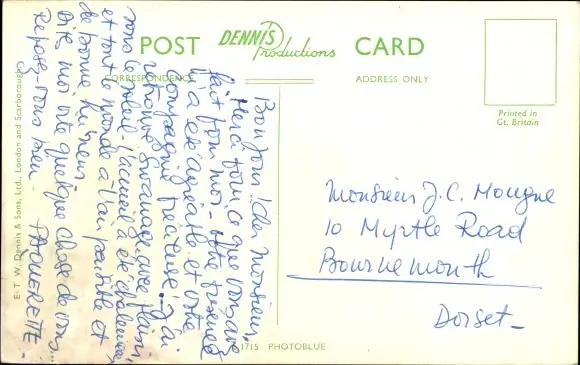 POST DENNIS Productions CARD
CORRESPONDENCE
ADDRESS ONLY
Printed in
Gt. Britain
E. T. W. Dennis & Sons, Ltd., London and Scarborough
Bonjour! cher Monsieur,
Merci pour ce que vous avez
fait pour moi - votre présence
m'a été agréable et votre
compagnie précieuse! J'ai
retrouvé Swanage avec plaisir
sous le soleil - l'accueil a été chaleureux
et tout le monde a l'air paisible et
de bonne humeur
Dite moi vite quelque chose de vous.
Reposez vous bien - PAQUERETTE -
Monsieur J.C. Mougne
10 Myrtle Road
Bournemouth
Dorset -
1715 PHOTOBLUE